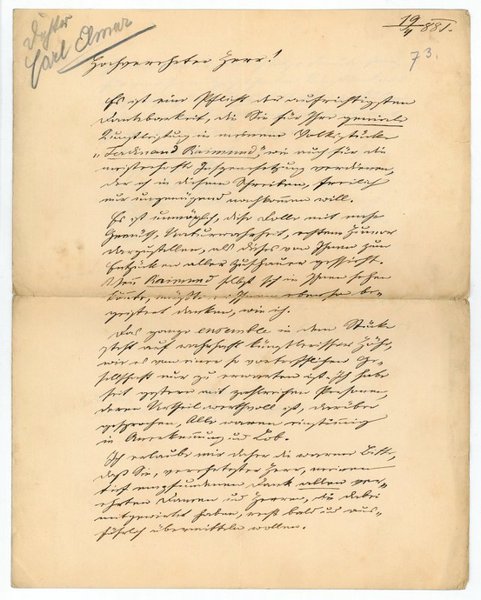 Dichter
Carl Elmar
19/4 881.
73.
Hochverehrter Herr!
Es ist eine Pflicht der aufrichtigsten
Dankbarkeit, die Sie für Ihre geniale
Kunstleistung in meinem Volksstücke
"Ferdinand Raimund," wie auch für die
meisterhafte Inszenesetzung verdienen,
der ich in diesem Schreiben, freilich
nur ungenügend nachkommen will.
Es ist unmöglich, diese Rolle mit mehr
Gemüth, Naturwahrheit, echtem Humor
darzustellen, als dieses von Ihnen zum
Entzücken aller Zuschauer geschieht.
Raimund selbst sich in Ihnen sehen
könnte, müßte er Ihnen ebenso be-
geistert danken, wie ich.
Das ganze ensemble in dem Stücke
steht auf wahrhaft künstlerischer Höhe,
wie es von einer so vortrefflichen Ge-
sellschaft nur zu erwarten ist. Ich habe
seit gestern mit zahlreichen Personen,
deren Urtheil werthvoll ist, darüber
gesprochen, Alle waren einstimmig
in Anerkennung und Lob.
Ich erlaube mir daher die warme Bitte,
daß Sie, verehrtester Herr, meinen
tief empfundenen Dank allen ver-
ehrten Damen und Herren, die dabei
mitgewirkt haben, recht bald und aus-
führlich übermitteln wollen.